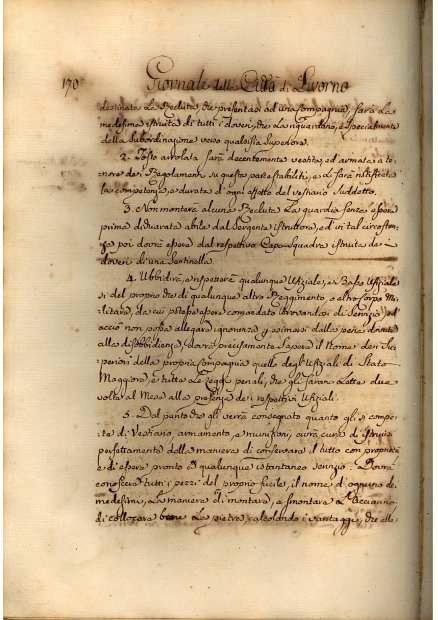 170 Giornale della Città di Livorno
destinata La Recluta, che presentasi ad una Compagnia, sarà La
medesima istruita di tutti i doveri, che La riguardano, e specialmente
della Subordinazione verso qualsisia Superiore.
2. Tosto arrolata sarà decentemente vestita, ed armata a te-
nore dei Regolamenti su questa parte stabiliti, e Le sarà notificata
la competenza, e durata d'ogni effetto del vestiario suddetto.
3. Non monterà alcuna Recluta La guardia senza essere
prima dichiarata abile dal Sergente istruttore, ed in tal circostan-
za poi dovrà essere dal respettivo Capo-Squadra istruita dei
doveri di una Sentinella.
4. Ubbidirà, e rispetterà qualunque Ufiziale, e Basso Ufiziale
sì del proprio che di qualunque altro Reggimento, o altro Corpo Mi-
litare, da cui potesse essere comandato trovandosi di Servizio, ed
acciò non possa allegare ignoranza, ed esimersi dalla pena dovuta
alla disubbidienza, dovrà precisamente Sapere il Nome dei Su-
periori della propria Compagnia quello degli Ufiziali di Stato
Maggiore, e tutte Le Leggi penali, che gli saran Lette due
volte al Mese alla presenza dei respettivi Ufiziali.
5. Dal punto che gli verrà consegnato quanto gli si compe-
te di Vestiario, armamento, e munizioni, avrà cura di istruirsi
perfettamente della maniera di conservare il tutto con proprietà
e di essere pronto ad qualunque istantaneo servizio. Dovrà
conoscere tutti i pezzi del proprio fucile, il nome di ognuno de
medesimi, La maniera di montare, e smontare L'acciarino
di collocare bene La pietra, calcolando i vantaggi, che alle